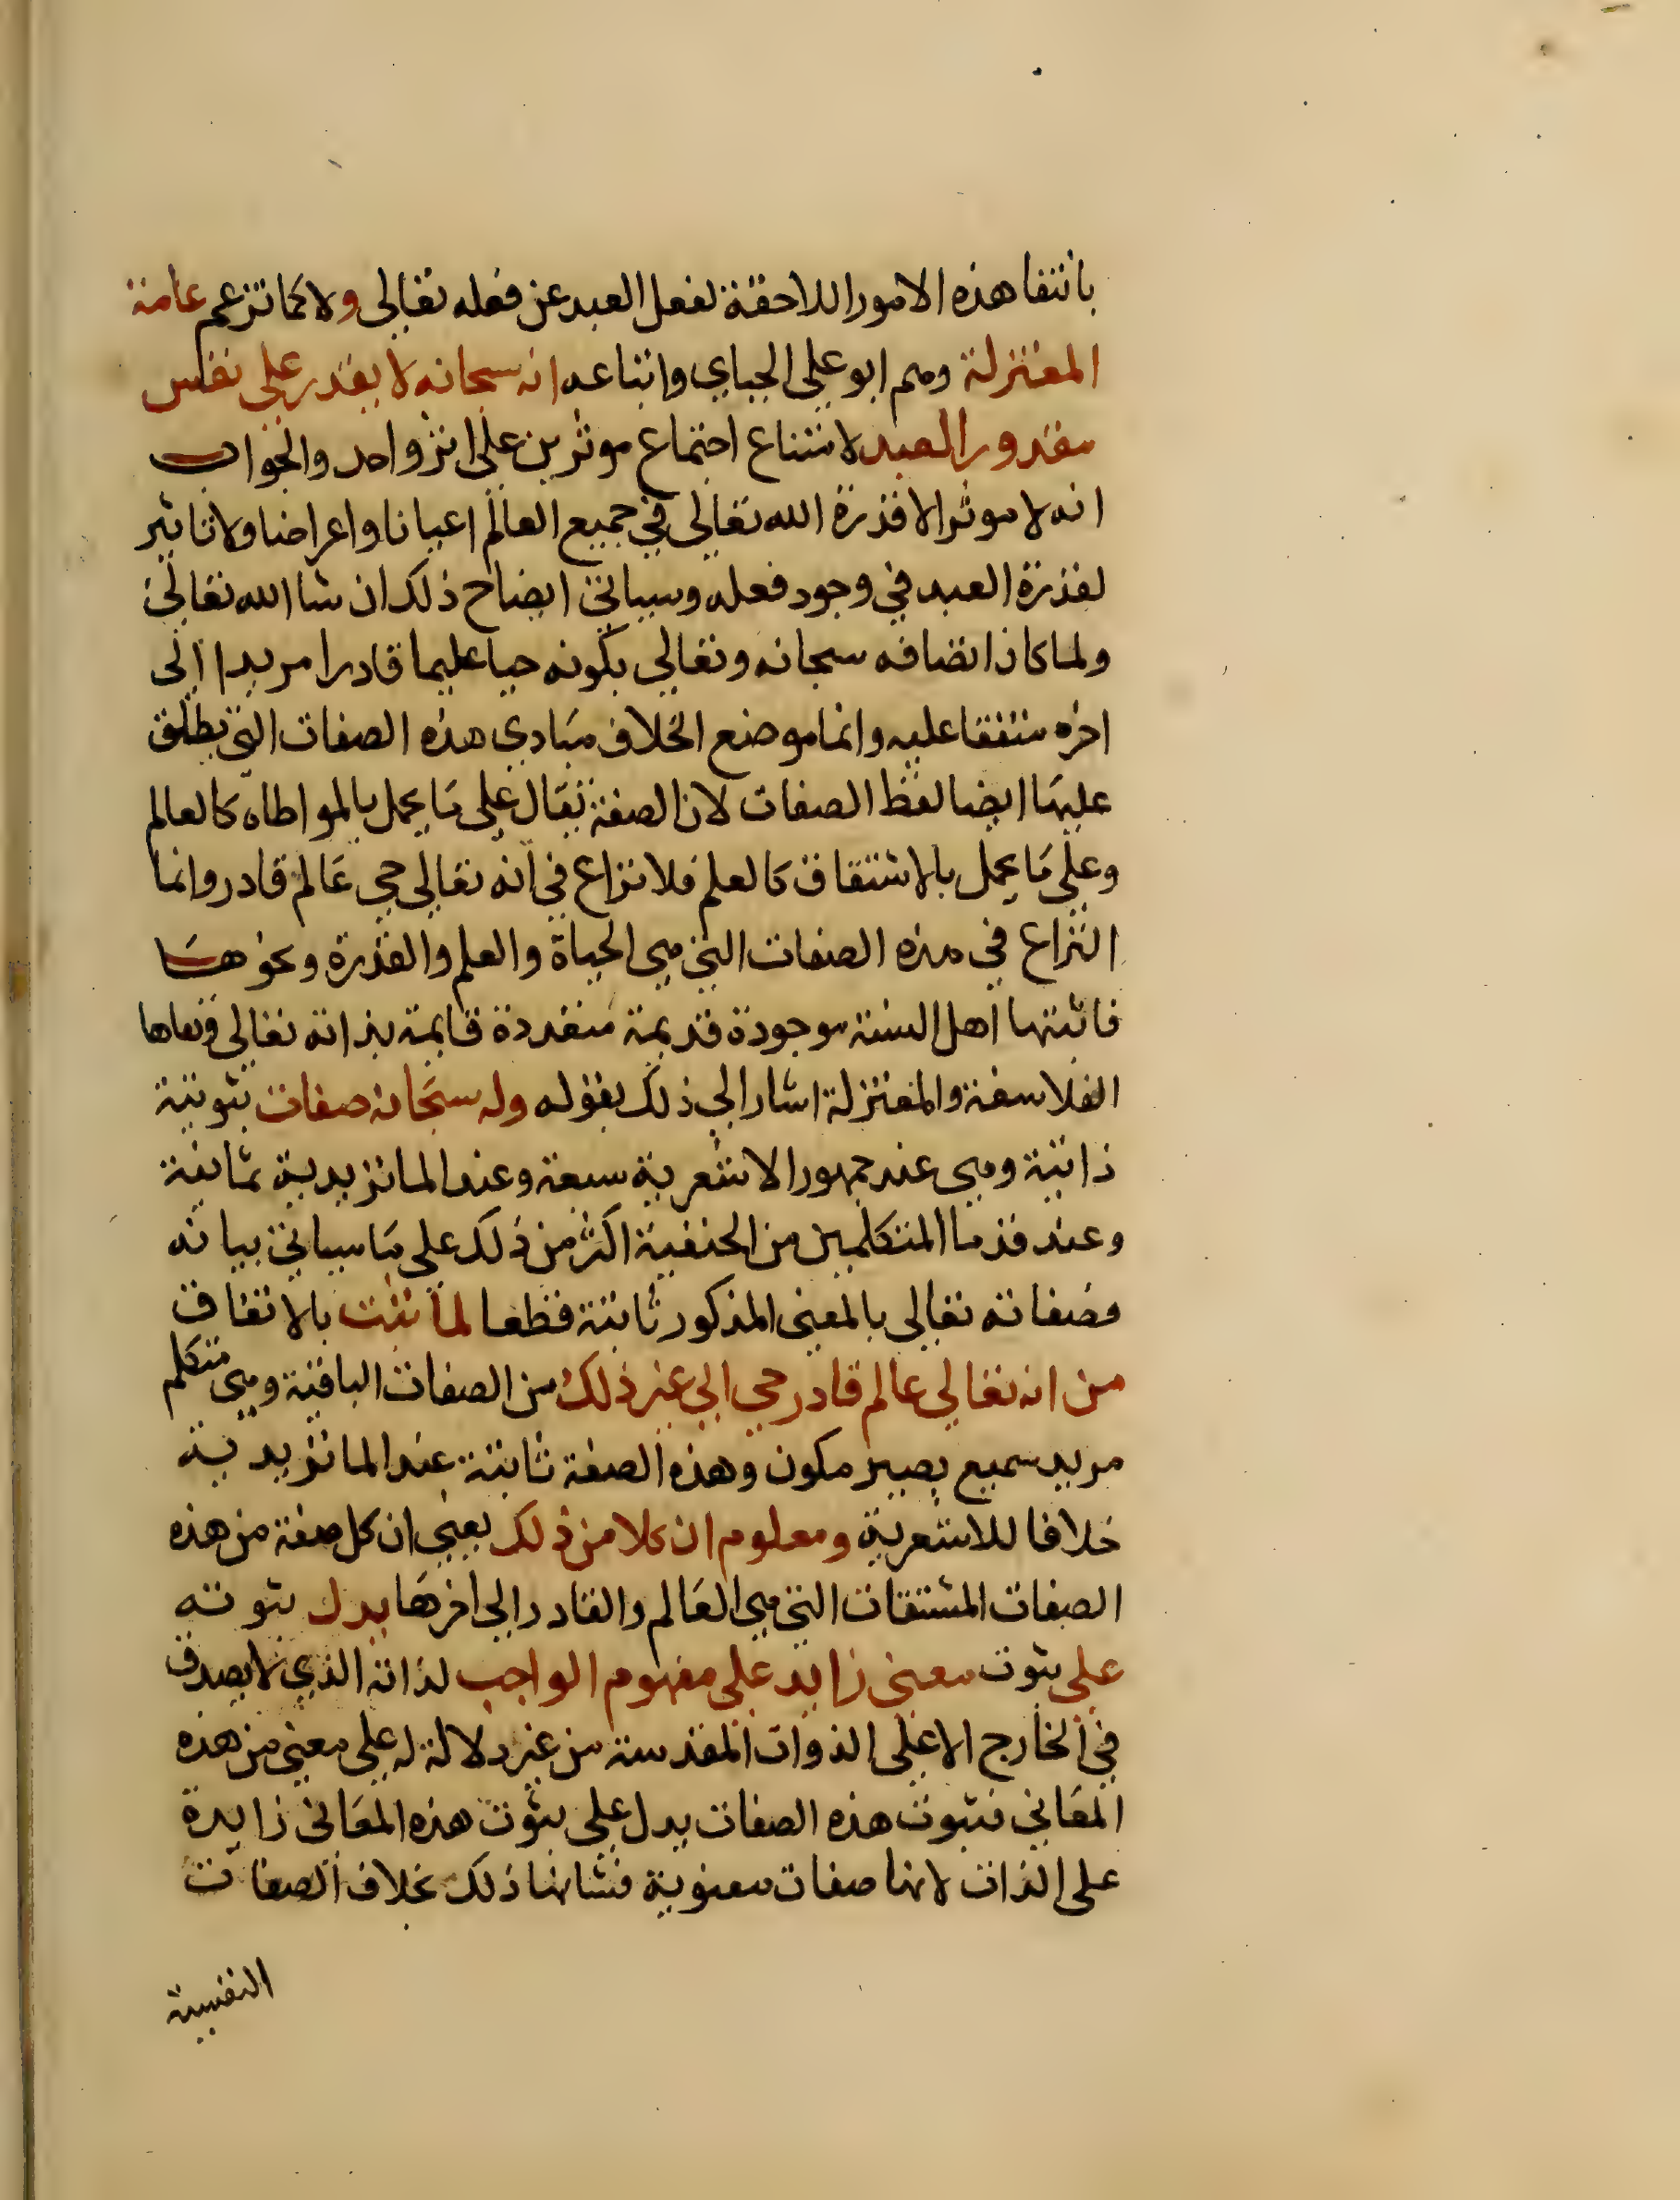 بانتفا هذه الامور اللاحقة لفعل العبد عن فعله تعالى ولا كما تزعم عامة
المعتزلة وهم ابو علي الجباي واتباعه انه سبحانه لا يقدر على نفس
مقدور العبد لامتناع اجتماع موثرين على اثر واحد والجواب
انه لا موثر الا قدرة الله تعالى في جميع العالم اعيانا واعراضا ولا تاثير
لقدرة العبد في وجود فعله وسياتي ايضاح ذلك ان شا الله تعالى
ولما كان اتصافه سبحانه وتعالى بكونه حيا عليما قادرا مريدا الى
اخره متفقا عليه وانما موضع الخلاف مبادي هذه الصفات التي يطلق
عليها ايضا لفظ الصفات لان الصفة تقال على ما يحمل بالمواطاه كالعالم
وعلى ما يحمل بالاشتقاق كالعلم فلا نزاع في انه تعالى حي عالم قادر وانما
النزاع في هذه الصفات التي هي الحياة والعلم والقدرة ونحوها
فاثبتها اهل السنة موجودة قديمة متعددة قايمة بذاته تعالى ونفاها
الفلاسفة والمعتزلة اشار الى ذلك بقوله وله سبحانه صفات ثبوتية
ذاتية وهي عند جمهور الاشعرية سبعة وعند الماتريدية ثمانية
وعند قدما المتكلمين من الحنفية اكثر من ذلك على ما سياتي بيانه
وصفاته تعالى بالمعنى المذكور ثابتة قطعا لما ثبت بالاتفاق
من انه تعالى عالم قادر حي الى غير ذلك من الصفات الباقية وهي متكلم
مريد سميع بصير مكون وهذه الصفة ثابتة عند الماتريدية
خلافا للاشعرية ومعلوم ان كلا من ذلك يعني ان كل صفة من هذه
الصفات المشتقات التي هي العالم والقادر الى اخرها يدل ثبوته
على ثبوت معنى زايد على مفهوم الواجب لذاته الذي لا يصدق
في الخارج الا على الذوات المقدسة من غير دلالة له على معنى من هذه
المعاني فثبوت هذه الصفات يدل على ثبوت هذه المعاني زايدة
على الذات لانها صفات معنوية فشانها ذلك بخلاف الصفات
النفسية